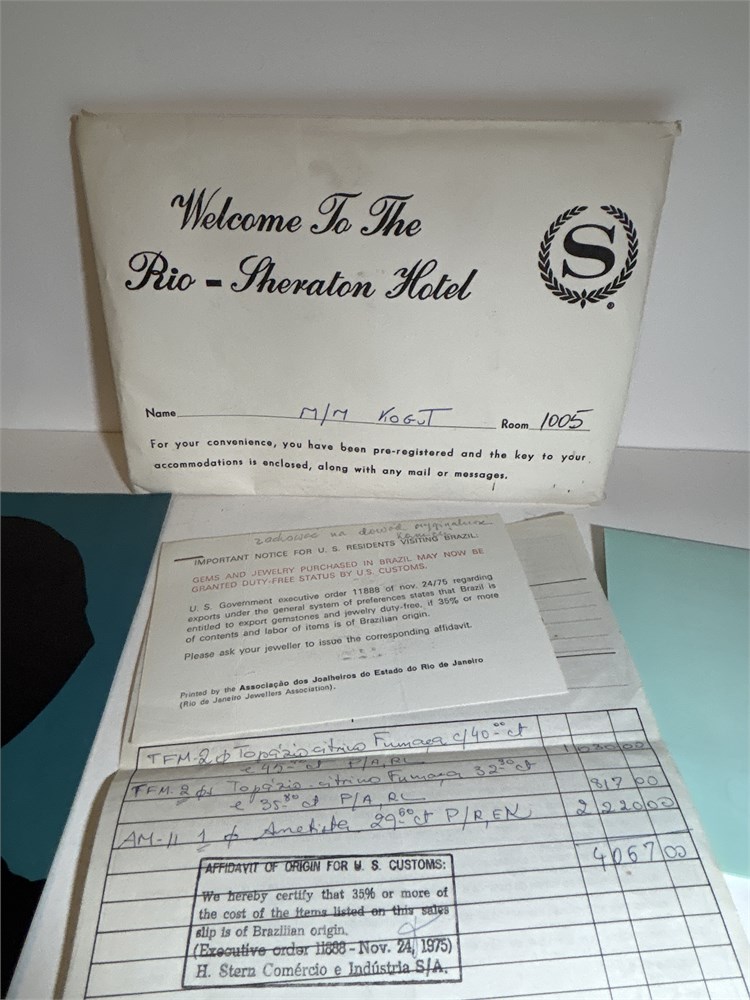 Welcome To The
Rio - Sheraton Hotel
S
®
Name M/M KOGUT Room 1005
For your convenience, you have been pre-registered and the key to your
accommodations is enclosed, along with any mail or messages.
zachować na dowód
IMPORTANT NOTICE FOR U. S. RESIDENTS VISITING BRAZIL:
GEMS AND JEWELRY PURCHASED IN BRAZIL MAY NOW BE
GRANTED DUTY-FREE STATUS BY U.S. CUSTOMS.
U. S. Government executive order 11888 of nov. 24/75 regarding
exports under the general system of preferences states that Brazil is
entitled to export gemstones and jewelry duty-free, if 35% or more
of contents and labor of items is of Brazilian origin.
Please ask your jeweller to issue the corresponding affidavit.
Printed by the Associação dos Joalheiros do Estado do Rio de Janeiro
(Rio de Janeiro Jewellers Association).
TFM-2 φ Topázio citrino Fumaça c/40-00 ct
e 45-00 ct P/A, RL 1 030 00
TFM-2 φs Topázio citrino Fumaça 32-30 ct
e 35-80 ct P/A, RL 817 00
AM-11 1 φ Ametista 29-60 ct P/R, EK 2 220 00
4067 00
AFFIDAVIT OF ORIGIN FOR U. S. CUSTOMS:
We hereby certify that 35% or more of
the cost of the items listed on this sales
slip is of Brazilian origin.
(Executive order 11888 - Nov. 24, 1975)
H. Stern Comércio e Indústria S/A.